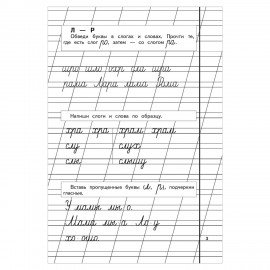 Л — Р
Обведи буквы в слогах и словах. Прочти те,
где есть слог ро, затем -- со слогом ра.
шла
рама Лара лама Рама
Напиши слоги и слова по образцу.
хра хра храм храм
слу слух
слы слышу
Вставь пропущенные буквы (л, р), подчеркни
гласные.
У мамы мы о.
Мама мы а Ла у
хо ошо.
3